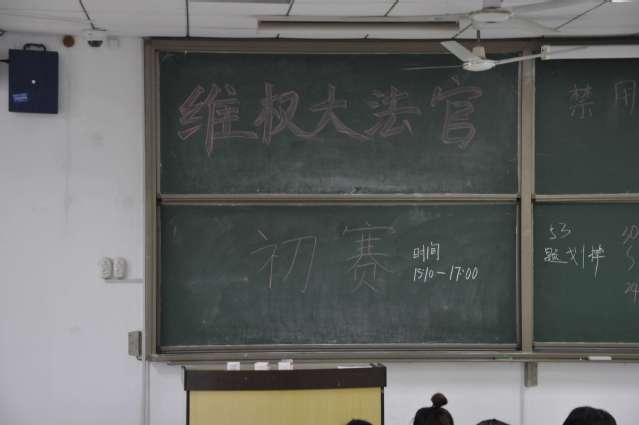 维权大法官
初赛
时间
15:10-17:00
禁用
53